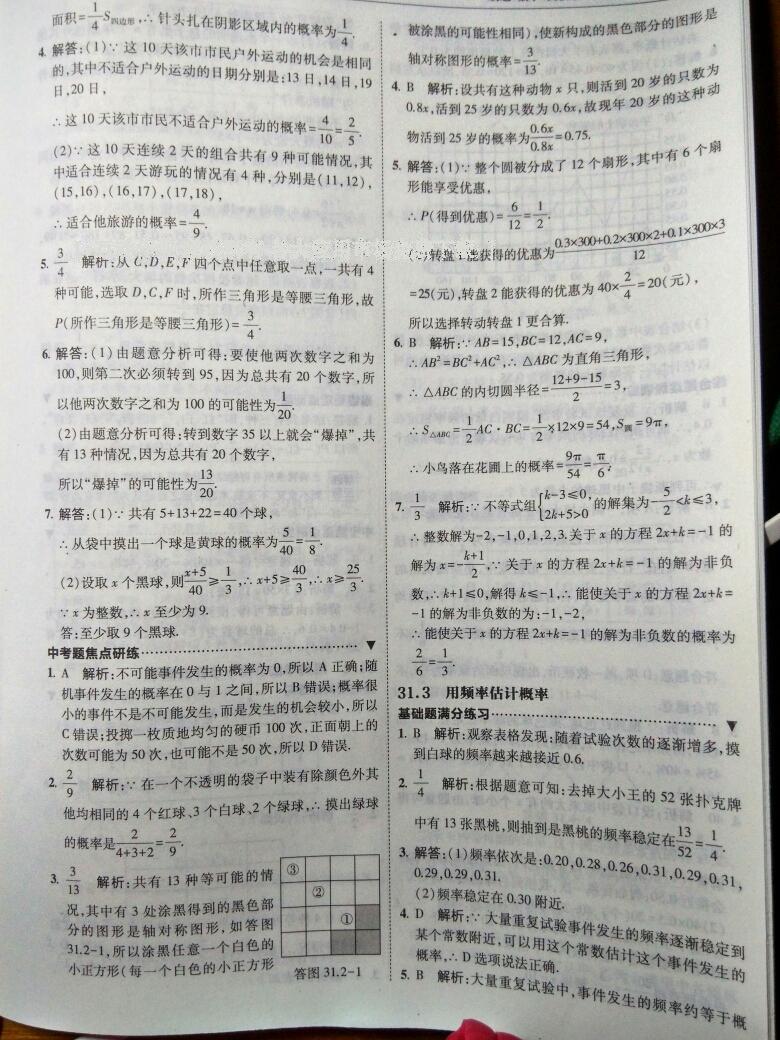 面积=1/4 S四边形,∴针头扎在阴影区域内的概率为1/4.
4. 解答:(1)∵这10天该市市民户外运动的机会是相同
的,其中不适合户外运动的日期分别是:13日,14日,19
日,20日,
∴这10天该市市民不适合户外运动的概率=4/10=2/5.
(2)∵这10天连续2天的组合共有9种可能情况,其
中适合连续2天游玩的情况有4种,分别是(11,12),
(15,16),(16,17),(17,18),
∴适合他旅游的概率=4/9.
5. 3/4 解析:从C,D,E,F四个点中任意取一点,一共有4
种可能,选取D,C,F时,所作三角形是等腰三角形,故
P(所作三角形是等腰三角形)=3/4.
6. 解答:(1)由题意分析可得:要使他两次数字之和为
100,则第二次必须转到95,因为总共有20个数字,所
以他两次数字之和为100的可能性为1/20.
(2)由题意分析可得:转到数字35以上就会“爆掉”,共
有13种情况,因为总共有20个数字,
所以“爆掉”的可能性为13/20.
7. 解答:(1)∵共有5+13+22=40个球,
∴从袋中摸出一个球是黄球的概率为5/40=1/8.
(2)设取x个黑球,则(x+5)/40≥1/3,∴x+5≥40/3,∴x≥25/3.
∵x为整数,∴x至少为9.
答:至少取9个黑球.
中考题焦点研练
1. A 解析:不可能事件发生的概率为0,所以A正确;随
机事件发生的概率在0与1之间,所以B错误;概率很
小的事件不是不可能发生,而是发生的机会较小,所以
C错误;投掷一枚质地均匀的硬币100次,正面朝上的
次数可能为50次,也可能不是50次,所以D错误.
2. 2/9 解析:∵在一个不透明的袋子中装有除颜色外其
他均相同的4个红球、3个白球、2个绿球,∴摸出绿球
的概率是2/(4+3+2)=2/9.
3. 3/13 解析:共有13种等可能的情
况,其中有3处涂黑得到的黑色部
分的图形是轴对称图形,如答图
31.2-1,所以涂黑任意一个白色的
小正方形(每一个白色的小正方形
③
②
①
答图31.2-1
被涂黑的可能性相同),使新构成的黑色部分的图形是
轴对称图形的概率=3/13.
4. B 解析:设共有这种动物x只,则活到20岁的只数为
0.8x,活到25岁的只数为0.6x,故现年20岁的这种动
物活到25岁的概率为0.6x/0.8x=0.75.
5. 解答:(1)∵整个圆被分成了12个扇形,其中有6个扇
形能享受优惠,
∴P(得到优惠)=6/12=1/2.
转盘1能获得的优惠为(0.3×300+0.2×300×2+0.1×300×3)/12
=25(元),转盘2能获得的优惠为40×2/4=20(元),
所以选择转动转盘1更合算.
6. B 解析:∵AB=15,BC=12,AC=9,
∴AB²=BC²+AC²,∴△ABC为直角三角形,
∴△ABC的内切圆半径=(12+9-15)/2=3,
∴S△ABC=1/2 AC·BC=1/2×12×9=54,S圆=9π,
∴小鸟落在花圃上的概率=9π/54=π/6.
7. 1/3 解析:∵不等式组{k-3≤0, 2k+5>0的解集为-5/2<k≤3,
∴整数解为-2,-1,0,1,2,3.关于x的方程2x+k=-1的
解为x=-(k+1)/2,∵关于x的方程2x+k=-1的解为非负
数,∴k+1≤0,解得k≤-1,∴能使关于x的方程2x+k=
-1的解为非负数的为:-1,-2,
∴能使关于x的方程2x+k=-1的解为非负数的概率为
2/6=1/3.
31.3 用频率估计概率
基础题满分练习
1. B 解析:观察表格发现:随着试验次数的逐渐增多,摸
到白球的频率越来越接近0.6.
2. 1/4 解析:根据题意可知:去掉大小王的52张扑克牌
中有13张黑桃,则抽到是黑桃的频率稳定在13/52=1/4.
3. 解答:(1)频率依次是:0.20,0.28,0.26,0.31,0.29,0.31,
0.29,0.29,0.31.
(2)频率稳定在0.30附近.
4. D 解析:∵大量重复试验事件发生的频率逐渐稳定到
某个常数附近,可以用这个常数估计这个事件发生的
概率,∴D选项说法正确.
5. B 解析:大量重复试验中,事件发生的频率约等于概